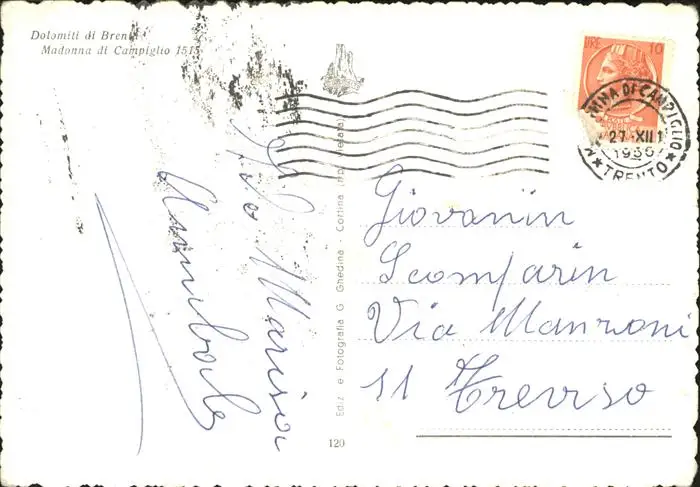 Dolomiti di Bren
Madonna di Campiglio 151
LIRE 10
NNA DI CAMPIGLIO
27 XII 1
195
TRENTO
Marisa
Annibale
Ediz. e Fotografia G Ghedina - Cortina
120
Giovannin
Scomparin
Via Manzoni
11 Treviso